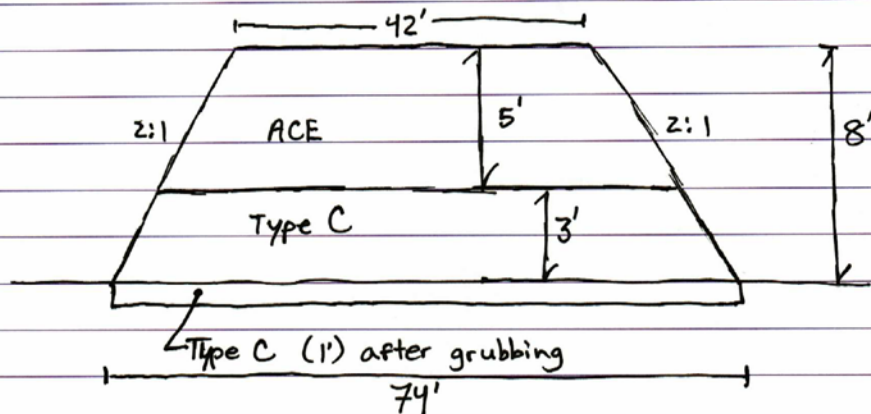 42'
2:1 ACE 5' 2:1 8'
Type C 3'
Type C (1') after grubbing
74'